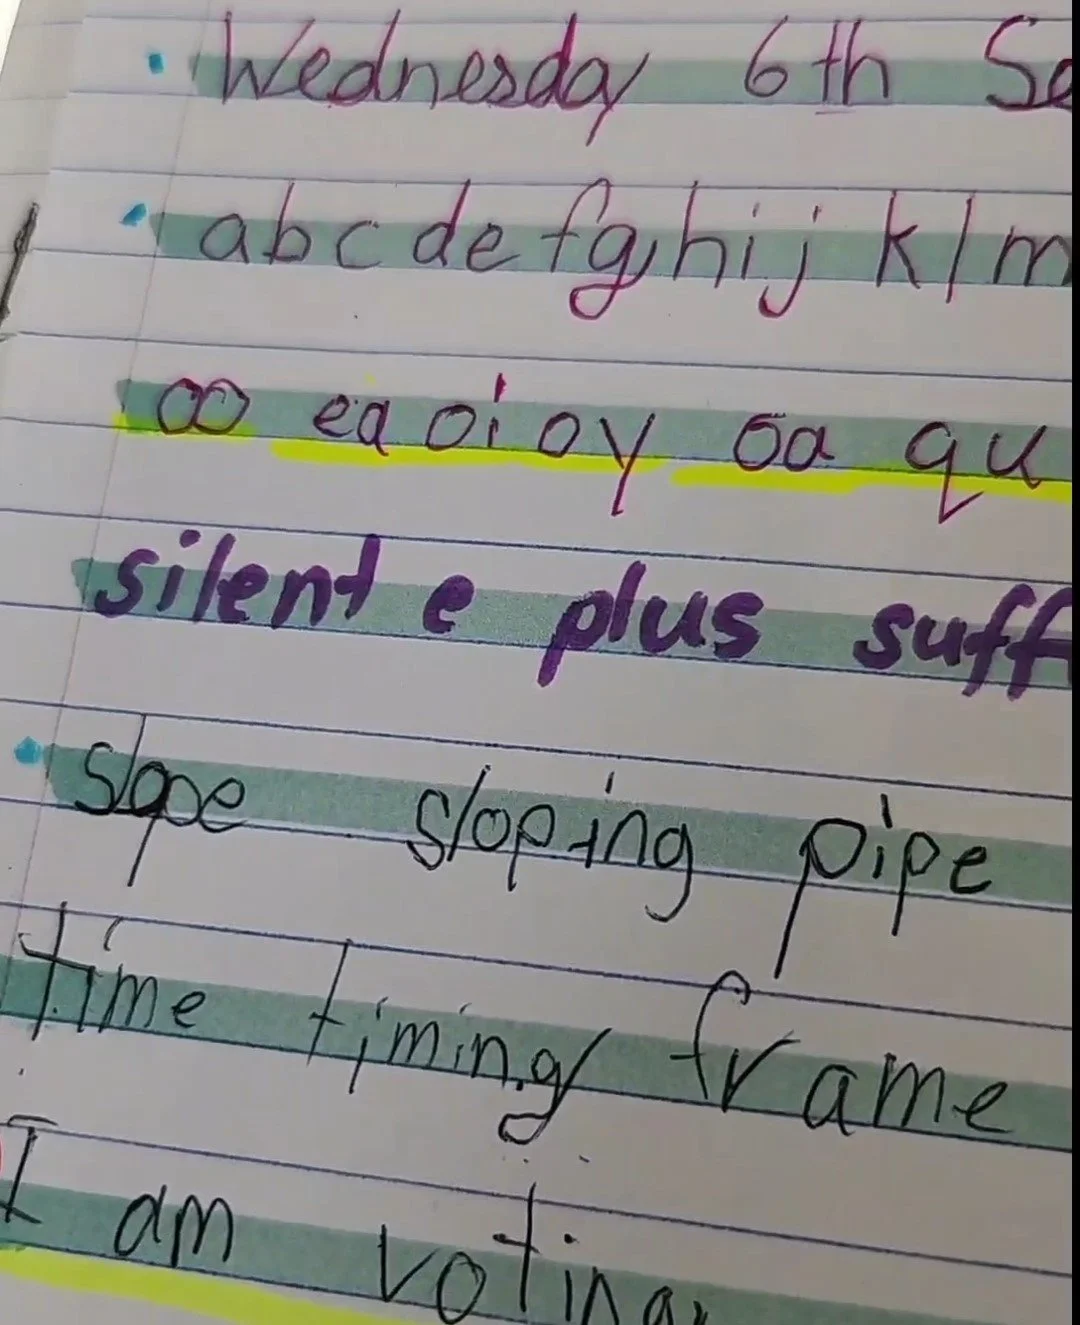 Wednesday 6th Se
abcdefghijklm
oo ea oi oy oa qu
silent e plus suff
slope sloping pipe
time timing frame
I am voting